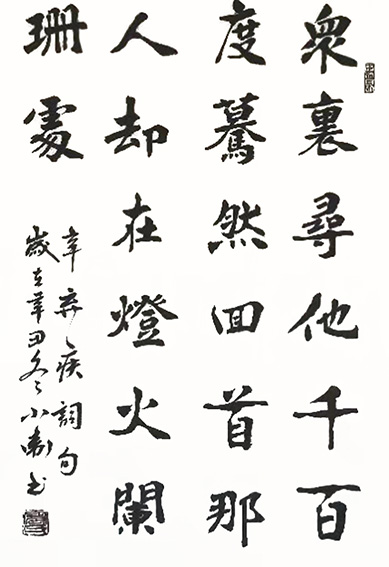 衆裏尋他千百
度驀然回首那
人却在燈火闌
珊處
辛弃疾詞句
歲在辛丑冬小书